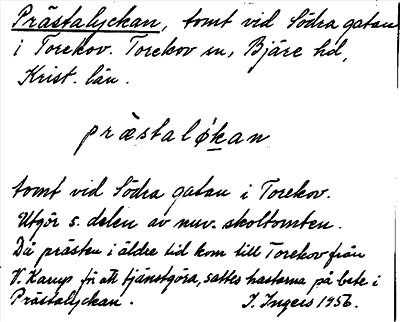 Prästalyckan, tomt vid Södra gatan
i Torekov. Torekov sn, Bjäre hd,
Krist. län.
præstaløkan
tomt vid Södra gatan i Torekov.
Utgör s. delen av nuv. skoltomten.
Då prästen i äldre tid kom till Torekov från
V. Karup för att tjänstgöra, sattes hästarna på bete i
Prästalyckan. I. Ingers 1956.